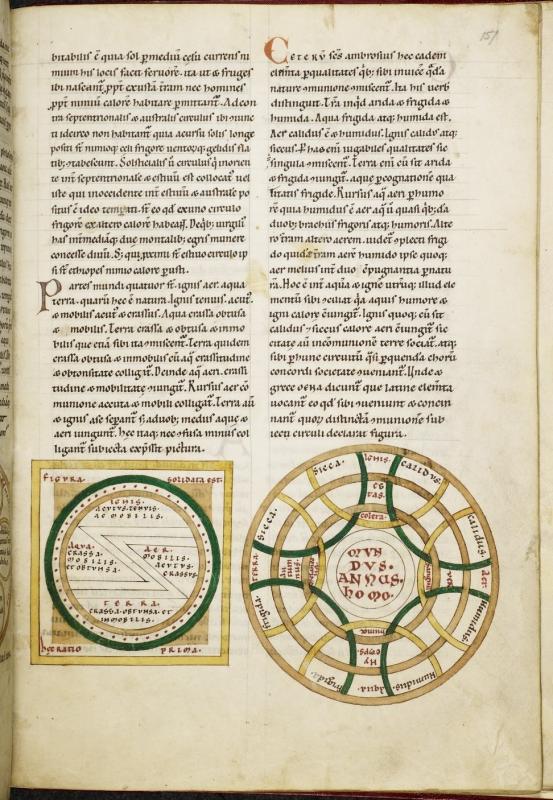 151
bitabilis ē quia sol p mediū celū currens ni
mium his locis facit feruorē. ita ut & fruges
ibi nascant̄ ppt̄ exustā t̄ram nec homines
ppt̄ nimiū calorē habitare p̄mittant̄. Ad con
tra septentrionalis & australis circulus ibi iunc
ti idcirco non habitant̄ quia a cursu solis longe
positi st̄ nimioq; celi frigore uentorq; gelidis fla
tib; tabescunt. Solstitialis ū circulus q̄
inter septentrionale & estiuū est collocat̄ uel
iste qui in occidente int̄ estiuū & australe po
situs ē ideo temp̄ati st̄ eo qd̄ ex uno circulo
frigorē ex altero calorē habeaſ. De qb; uirgiliꝰ
has int̄ mediāq; due mortalib; egris munere
concesse diuū. S; qui p̄ximi st̄ estiuo circulo ip
si st̄ ethiopes nimio calore p̄usti.
Partes mundi quatuor st̄. ignis. aer. aqua
terra. quarū hec ē natura. Ignis tenuis. acutꝰ
& mobilis. acutꝰ & crassus. Aqua crassa obtusa
& mobilis. Terra crassa & obtusa & inmo
bilis que etiā sibi ita miscent̄. Terra quidem
crassa obtusa & inmobilis cū aq̄ crassitudine
& obtonsitate colligat̄. Deinde aq̄ aeri. crassi
tudine & mobilitate iungit̄. Rursus aer cō
munione acuta & mobili colligat̄. Terra aū
& ignis a se sepant̄ s; a duob; mediis aque &
aeri iungunt̄. hec itaq; ne confusa minus col
ligant̄ subiecta exp̄ssit pictura.
Ceterū scs̄ ambrosius hec eadem
elem̄ta p qualitates qb; sibi inuicē q̄da
nature cōmunione miscent̄. Ita his uerb
distinguit. T̄ra inqd̄ arida & frigida &
humida. Aqua frigida atq; humida est.
Aer calidus ē & humidus. Ignis calidꝰ atq;
siccus. P has eni iugabiles qualitates sic
singula miscent̄. Terra eni cū sit arida
& frigida iungit̄. aque p cognatione qua
litatis frigide. Rursus aq̄ aeri p humo
rē quia humidus ē aer aq̄ ū quasi qb; da
duob; brachiis frigoris atq; humoris. Alte
ro t̄ram altero aerem. uidet̄ cōplecti frigi
do quidē t̄ram aerē humido ipse quoq;
aer medius int̄ duo cōpugnantia p natu
rā. Hoc ē int̄ aquā & ignē utrūq; illud ele
mentū sibi cōciliat q̄a aquis humore &
igni calore cōiungit̄. Ignis quoq; cū sit
calidus & siccus calore aeri cōiungit̄ sic
citate aū in communionē terre sociat̄. atq;
sibi p hunc circuitū q̄si p quendā chorū
concordi societate ueniant̄. Unde &
grece dicunt̄ que latine elem̄ta
uocant̄ eo qd̄ sibi ueniunt & concin
nant̄. quoꝝ distinctā cōmunionē sub
iecti circuli declarat figura.
FIGURA. SOLIDATA EST.
IGNIS.
ACUTUS. TENUIS.
MOBILIS.
AQUA.
CRASSA.
MOBILIS.
ET OBTUNSA.
AER.
MOBILIS.
ACUTUS.
CRASSUS.
TERRA.
CRASSA. OBTUNSA. ET
INMOBILIS.
HEC RATIO PRIMA.
IGNIS.
CALIDUS.
CALIDUS.
AER
HUMIDUS.
HUMIDUS.
AQUA.
FRIGIDA
FRIGIDA.
TERRA
SICCA.
SICCA.
ES
TAS.
COLERA.
AU
TUM
NUS.
HY
EMPS.
MUN
DUS.
ANNUS.
HOMO.